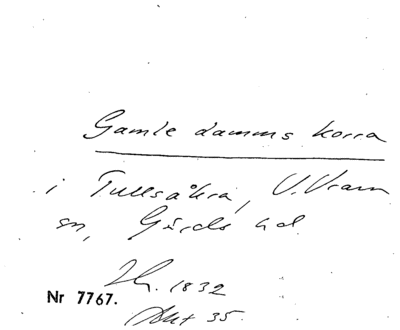 Gamle damms korra
i Tullsåkra, V. Vram
sn, Gärds hd.
Lh. 1832
Nr 7767.
Akt 35.